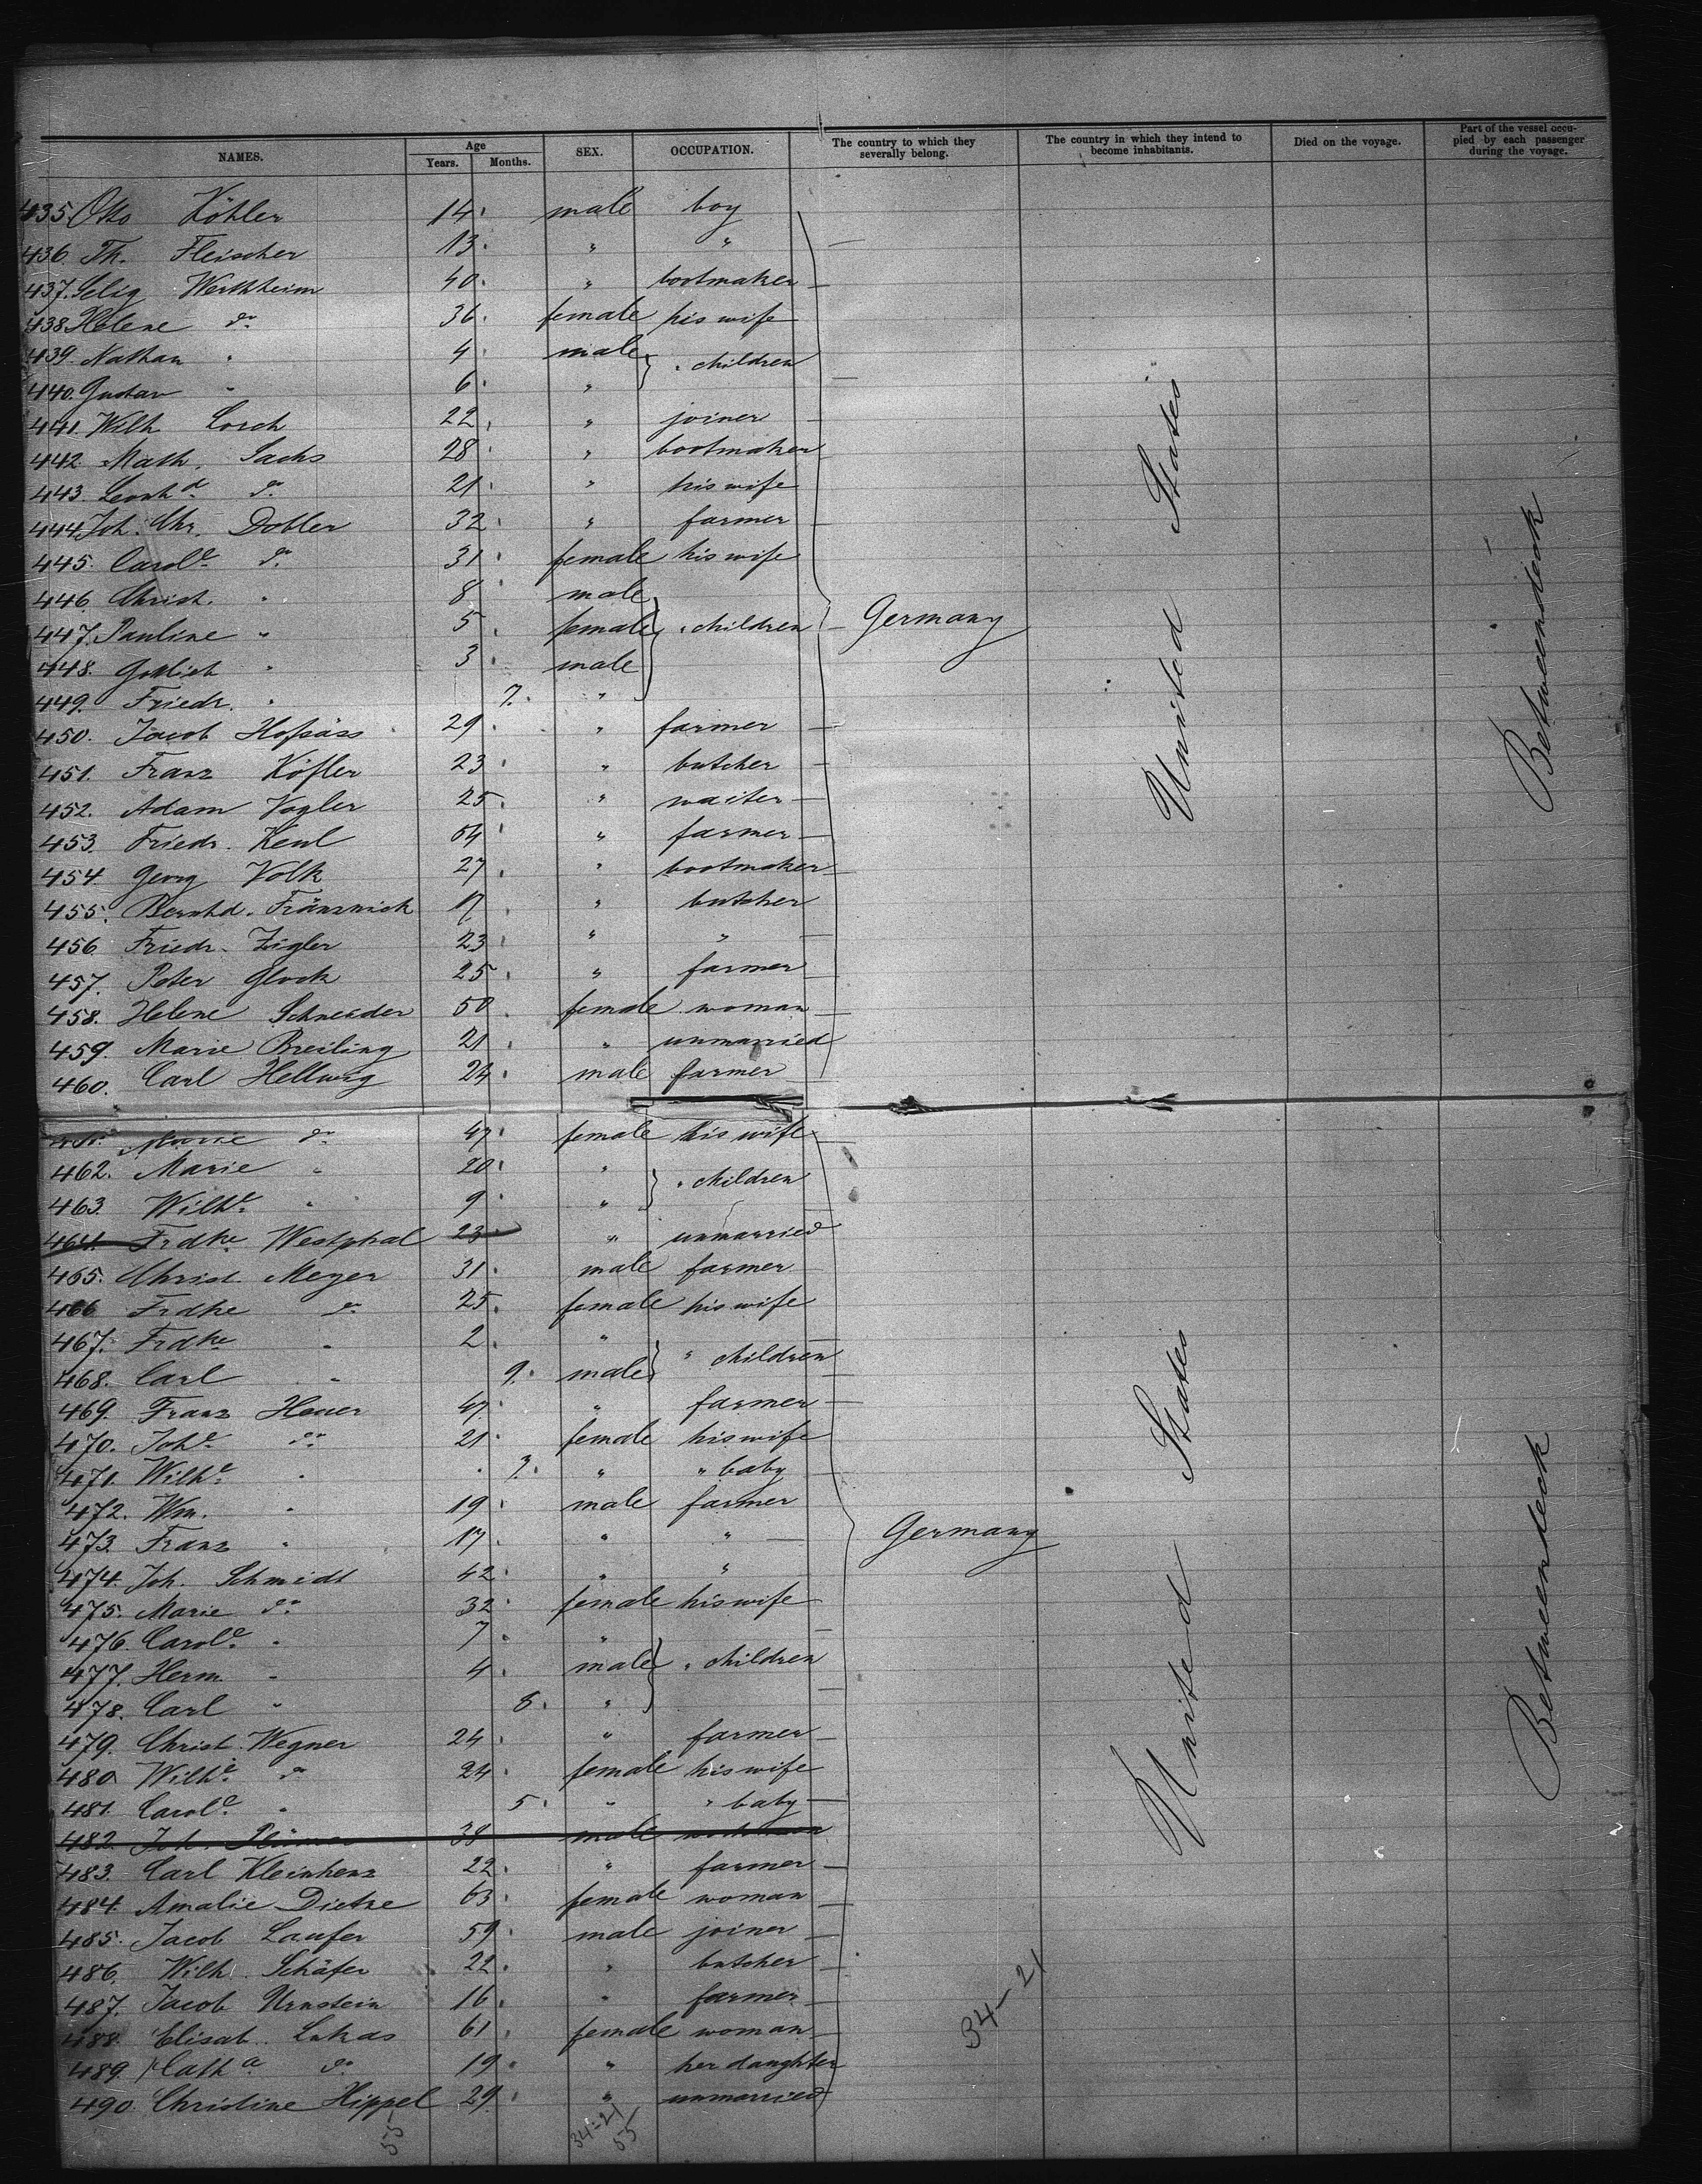 NAMES. Age Years. Months. SEX. OCCUPATION. The country to which they severally belong. The country in which they intend to become inhabitants. Died on the voyage. Part of the vessel occupied by each passenger during the voyage.
435. Otto Köhler 14 male boy
436. Th. Fleischer 13 " "
437. Selig Wertheim 40 " bootmaker
438. Helene do 36 female his wife
439. Nathan " 4 male " children
440. Gustav " 6 "
441. Wilh Lorch 22 " joiner
442. Math. Sachs 28 " bootmaker
443. Leonhd do 21 " his wife
444. Joh. Chr. Dobler 32 " farmer
445. Carole do 31 female his wife
446. Christ. " 8 male
447. Pauline " 5 female " children
448. Gottlieb " 3 male
449. Friedr. " 7. "
450. Jacob Hofsäss 29 " farmer
451. Franz Köfler 23 " butcher
452. Adam Vogler 25 " waiter
453. Friedr. Keul 54 " farmer
454. Georg Volk 27 " bootmaker
455. Bernhd. Fränznick 17 " butcher
456. Friedr. Zigler 23 " "
457. Peter Glock 25 " farmer
458. Helene Schneider 50 female woman
459. Marie Breiling 21 " unmarried
460. Carl Hellwig 24 male farmer
Germany
United States
Betweendeck
Marie do 47 female his wife
462. Marie " 20 " " children
463. Wilhe " 9 "
464. Frdke Westphal 23 " unmarried
465. Christ. Meyer 31 male farmer
466. Frdke do 25 female his wife
467. Frdke " 2 " " children
468. Carl " 9. male
469. Franz Heuer 47 " farmer
470. Johe do 21 female his wife
471. Wilhe " 7. " " baby
472. Wm. " 19 male farmer
473. Franz " 17 " "
474. Joh. Schmidt 42 " "
475. Marie do 32 female his wife
476. Carole " 7 "
477. Herm. " 4 male " children
478. Carl " 8. "
479. Christ. Wegner 24 " farmer
480. Wilhe do 24 female his wife
481. Carole " 5. " " baby
482. Joh. 38 male
483. Carl Kleinhenz 22 " farmer
484. Amalie Dietze 63 female woman
485. Jacob Laufer 59 male joiner
486. Wilh. Schäfer 22 " butcher
487. Jacob Urnstein 16 " farmer
488. Elisab. Lukas 61 female woman
489. Catha do 19 " her daughter
490. Christine Hippel 29 " unmarried
Germany
United States
Betweendeck
34-21
55
34-21
55